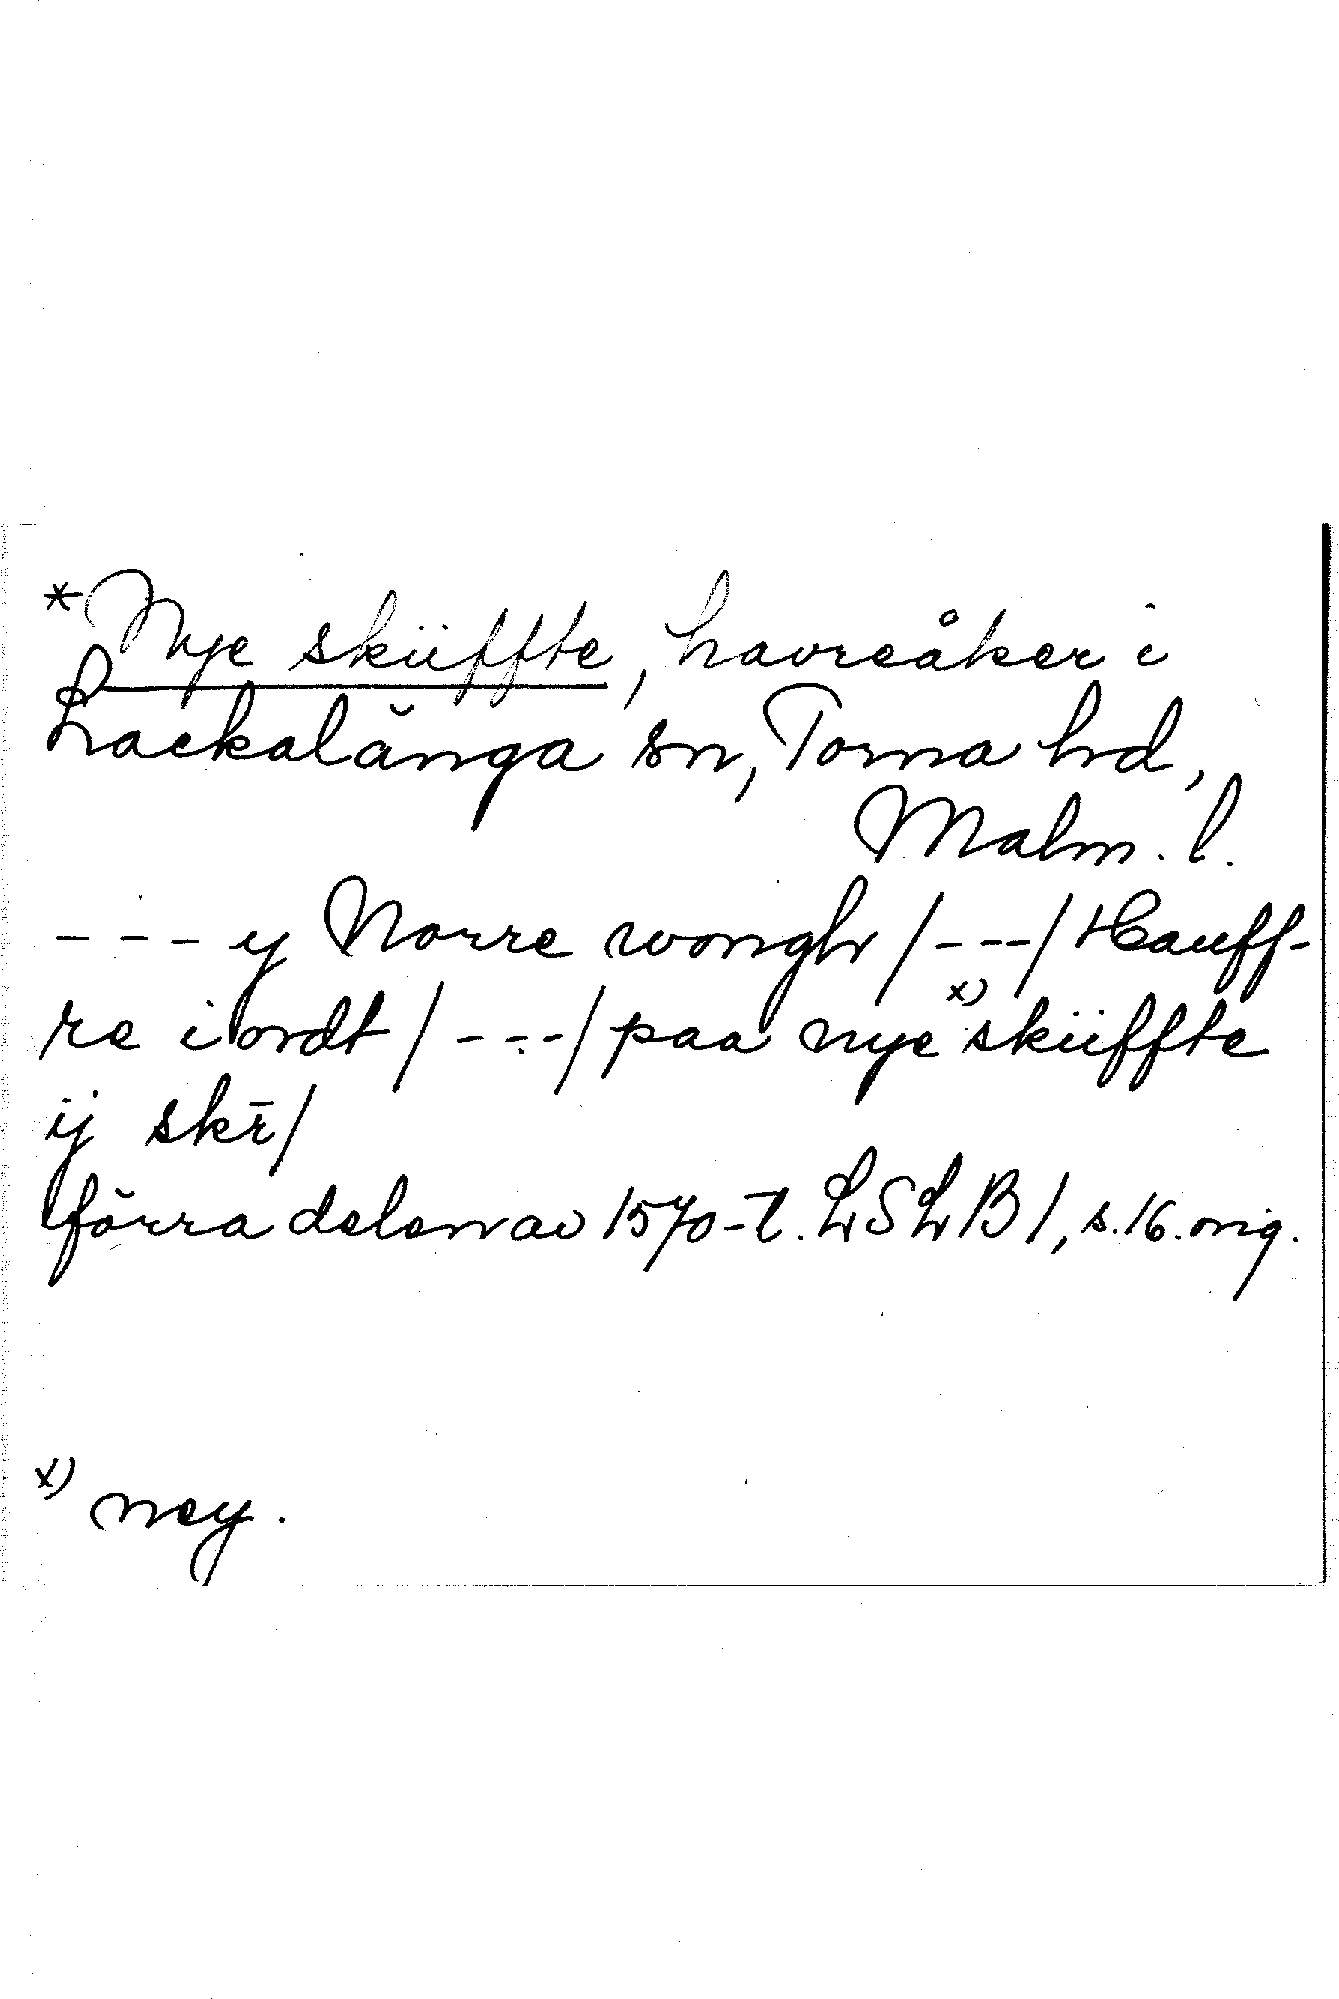 *Nye skiiffte, havreåker i
Lackalänga sn, Torna hd,
Malm. l.
--- y Norre wongh /---/ Hauff-
re iordt /---/ paa nye x) skiiffte
ij skr̄/
förra delen av 1570-t. LSLB 1, s.16. orig.
x) ney.